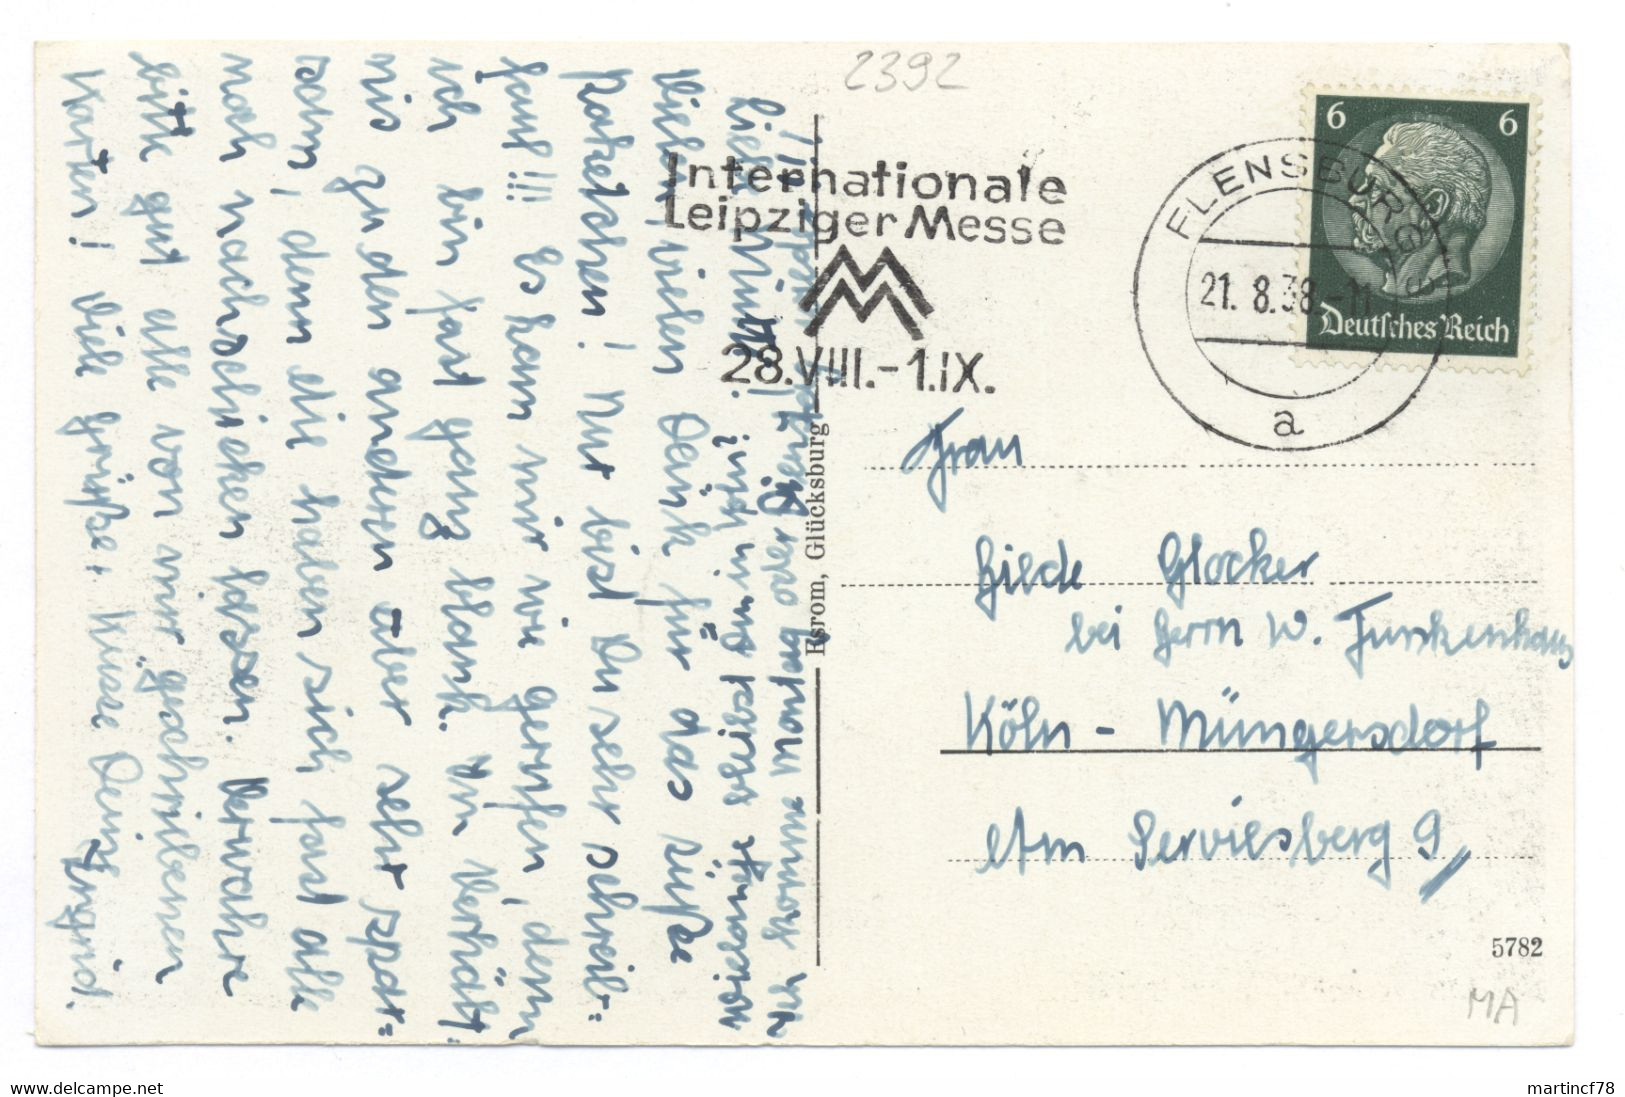 2392
Internationale
Leipziger Messe
28.VIII.-1.IX.
FLENSBURG
21. 8.38.-11
a
6 6
Deutsches Reich
Liebe Mutti!
Vielen, vielen Dank für das süße
Paketchen! Nur bist Du sehr schreib-
faul!!! Es kam mir wie gerufen, denn
ich bin fast ganz blank. Im Verhält-
nis zu den anderen aber sehr spar-
sam, denn die haben sich fast alle
noch nachschicken lassen. Verwahre
bitte gut alle von mir geschriebenen
Karten! Viele Grüße + Küsse Deine
Ingrid.
Ich komme Montag oder Dienstag wieder!!
Esrom, Glücksburg
Frau
Hilde Glocker
bei Herrn W. Funkenhaus
Köln - Müngersdorf
Am Serviesberg 9
5782
MA
www.delcampe.net
martincf78